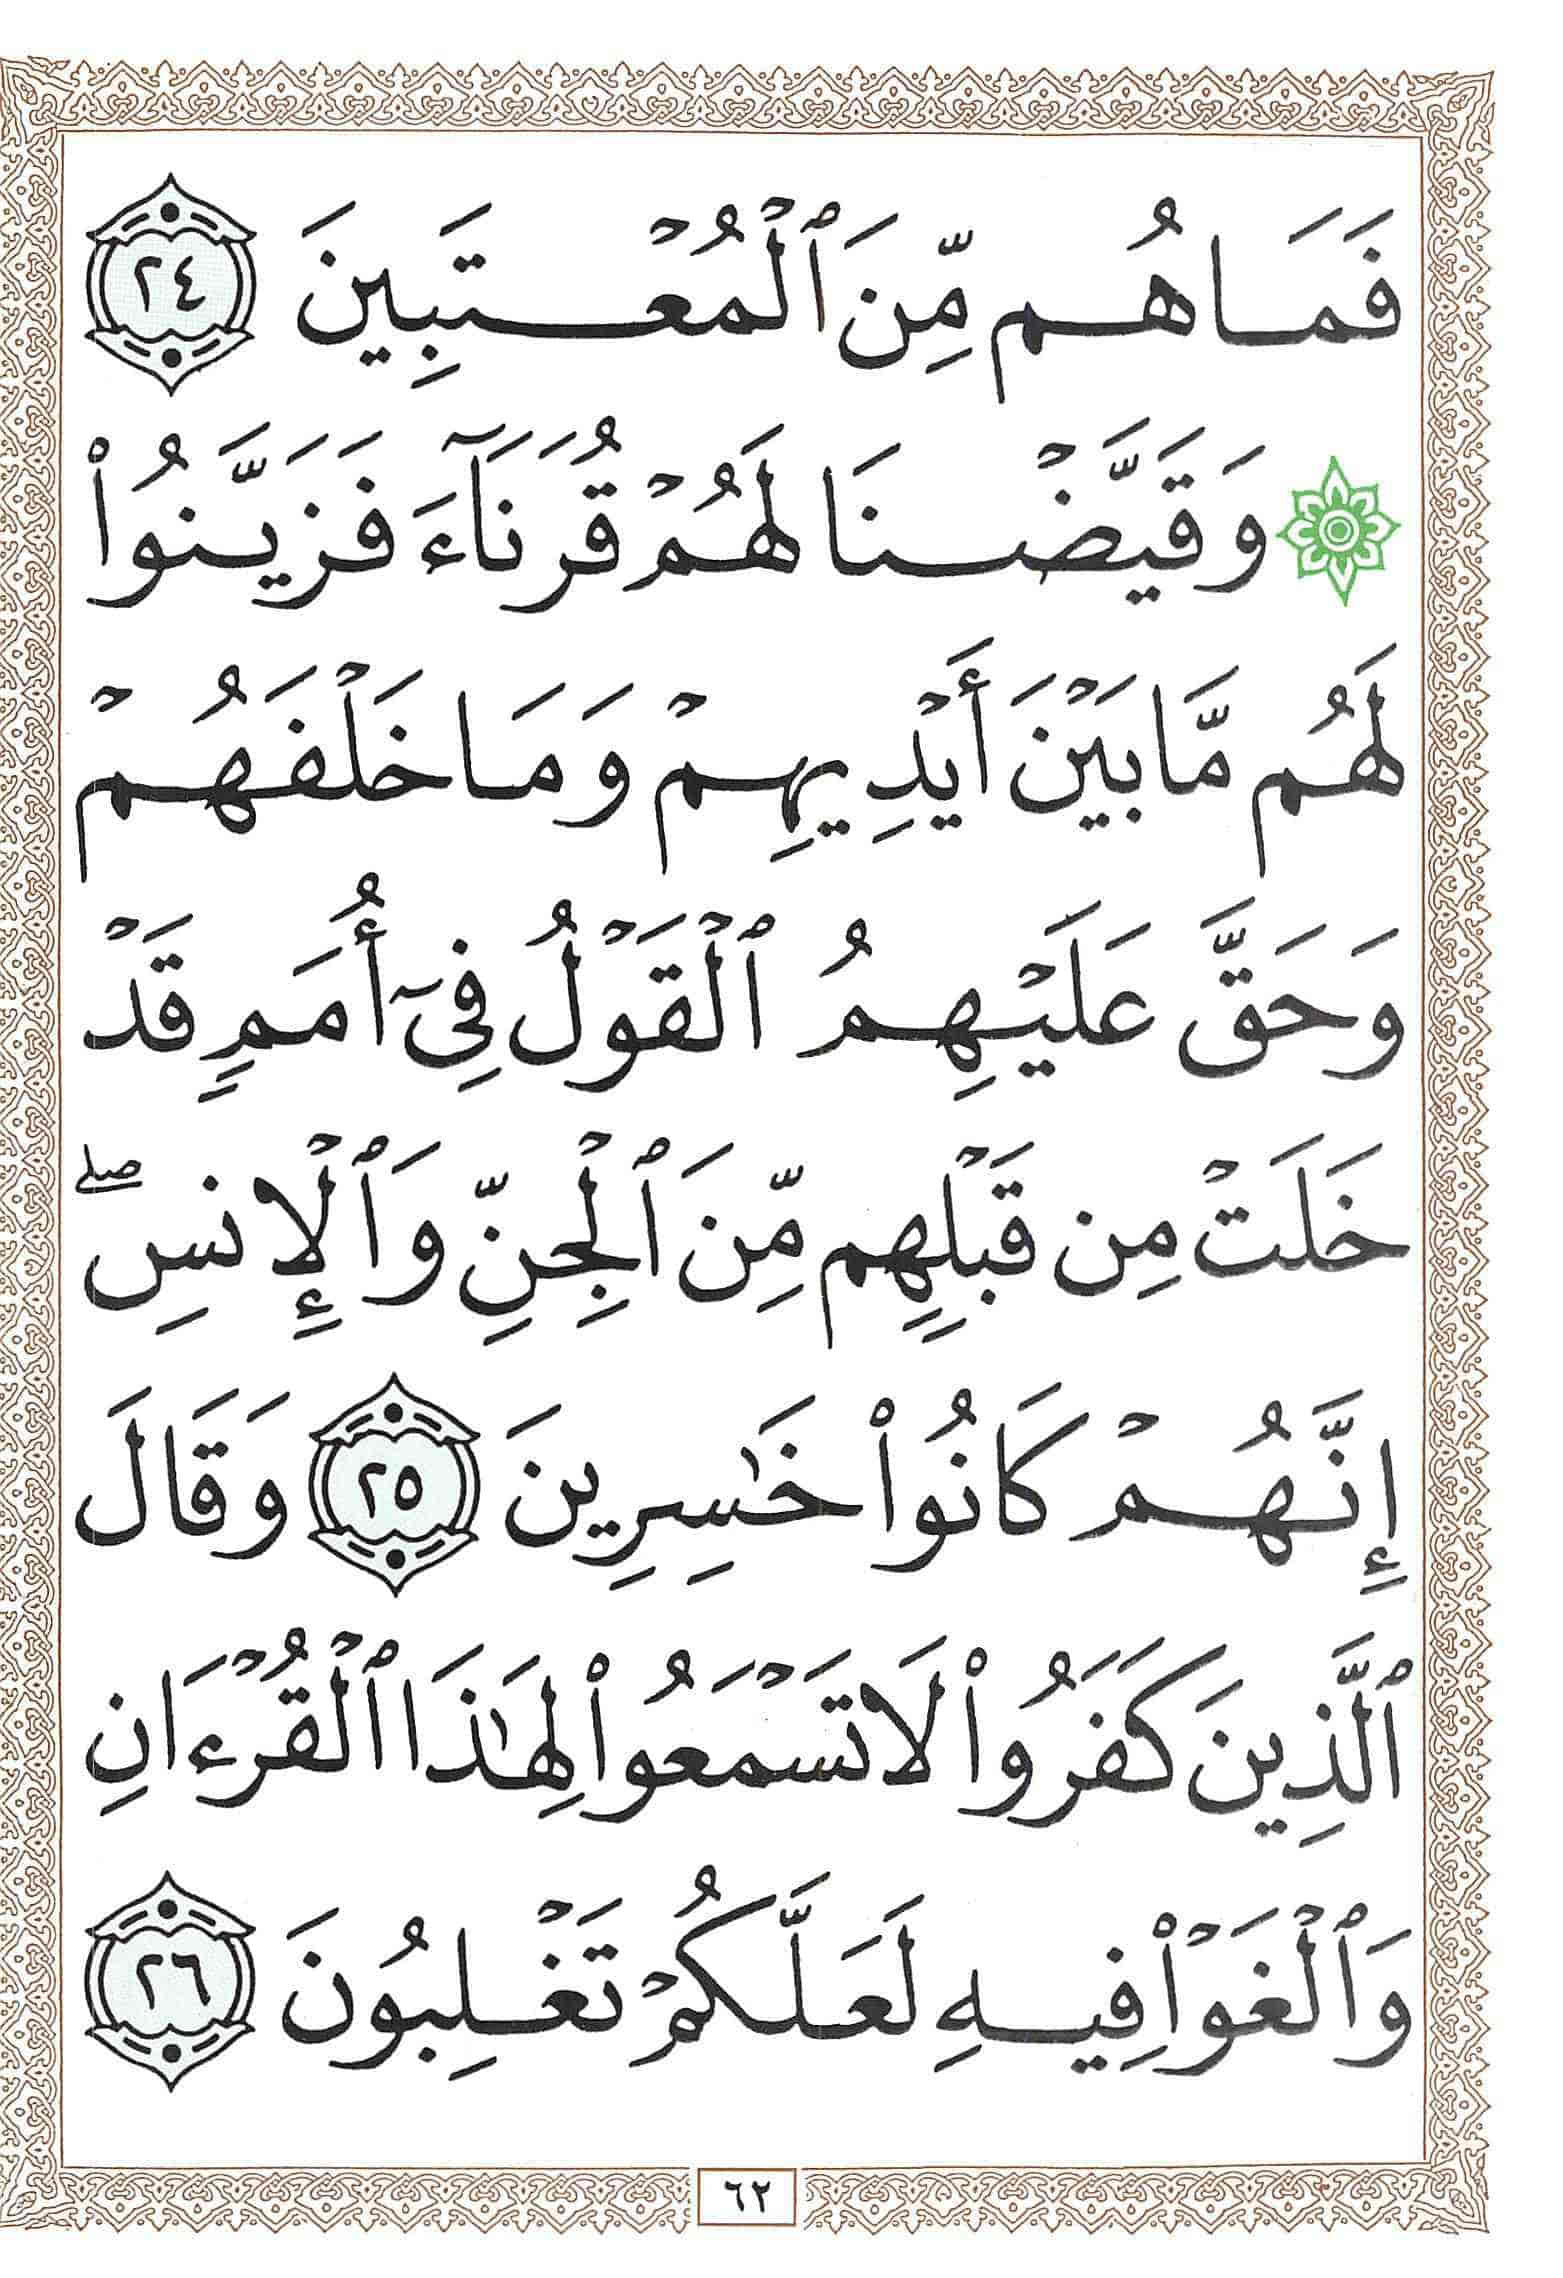 فَمَا هُم مِّنَ ٱلْمُعْتَبِينَ ٢٤
وَقَيَّضْنَا لَهُمْ قُرَنَآءَ فَزَيَّنُوا۟
لَهُم مَّا بَيْنَ أَيْدِيهِمْ وَمَا خَلْفَهُمْ
وَحَقَّ عَلَيْهِمُ ٱلْقَوْلُ فِىٓ أُمَمٍ قَدْ
خَلَتْ مِن قَبْلِهِم مِّنَ ٱلْجِنِّ وَٱلْإِنسِ ۖ
إِنَّهُمْ كَانُوا۟ خَـٰسِرِينَ ٢٥ وَقَالَ
ٱلَّذِينَ كَفَرُوا۟ لَا تَسْمَعُوا۟ لِهَـٰذَا ٱلْقُرْءَانِ
وَٱلْغَوْا۟ فِيهِ لَعَلَّكُمْ تَغْلِبُونَ ٢٦
٦٢